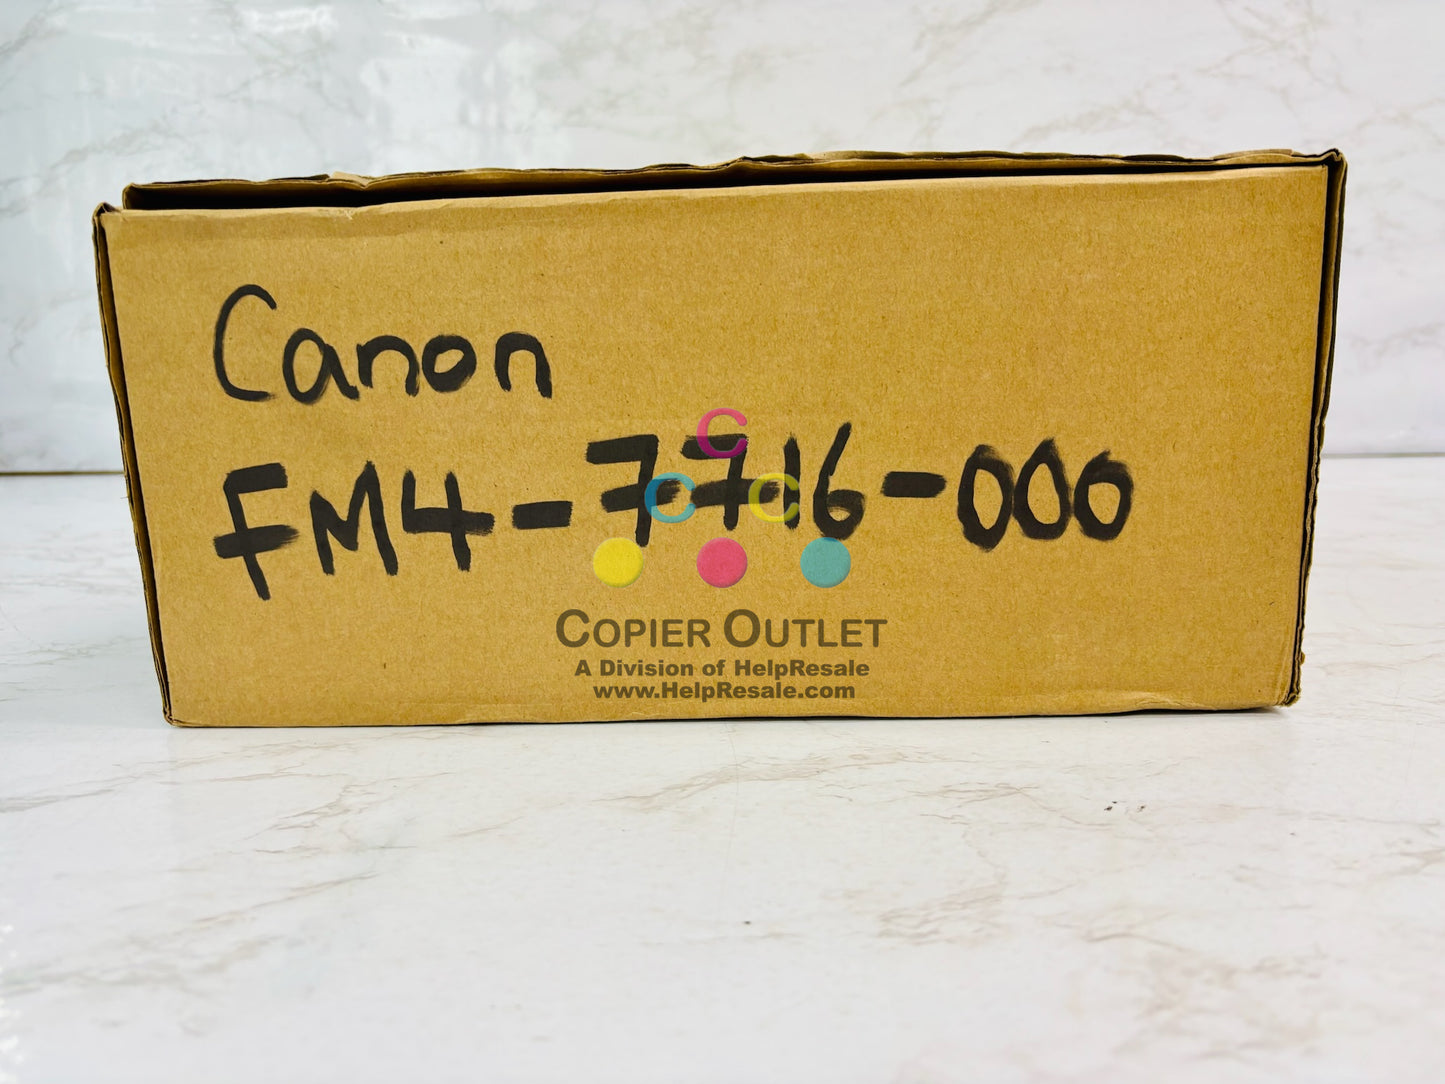 Canon
FM4-7716-000
C
C C
COPIER OUTLET
A Division of HelpResale
www.HelpResale.com